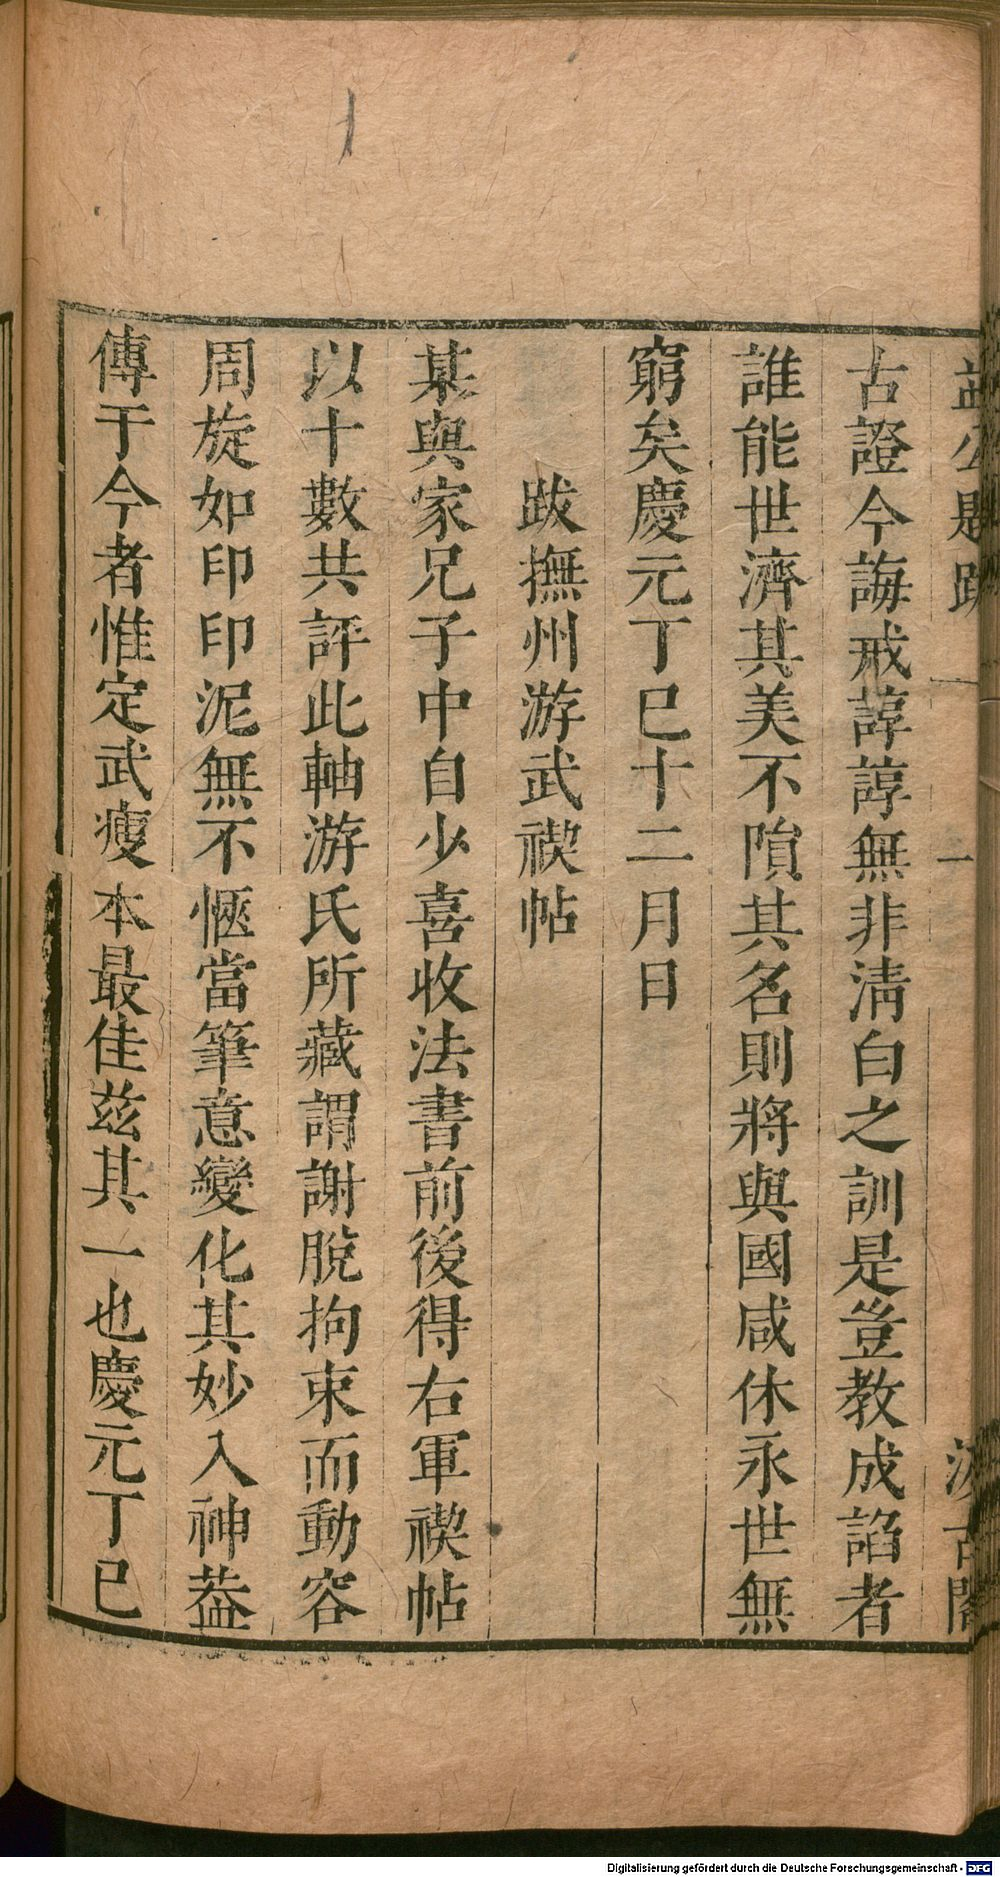 益公題跋 一 一 汲古閣
古證今誨戒諄諄無非淸白之訓是豈敎成諂者
誰能世濟其美不隕其名則將與國咸休永世無
窮矣慶元丁巳十二月日
跋撫州游武禊帖
某與家兄子中自少喜收法書前後得右軍禊帖
以十數共評此軸游氏所藏謂謝脫拘束而動容
周旋如印印泥無不愜當筆意變化其妙入神葢
傳于今者惟定武瘦本最佳兹其一也慶元丁巳
Digitalisierung gefördert durch die Deutsche Forschungsgemeinschaft - DFG